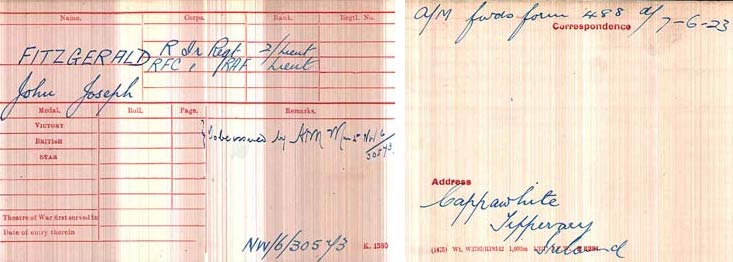 Name. Corps. Rank. Regtl. No.
FITZGERALD R Ir Regt 2/Lieut
RFC, RAF Lieut
John Joseph
Medal. Roll. Page. Remarks.
VICTORY
BRITISH
STAR
To be issued by A.M. NW/6/30543.
Theatre of War first served in
Date of entry therein
NW/6/30543 K. 1380
A/M fwds form 488 d/
Correspondence 7-6-23
Address
Cappawhite
Tipperary
Ireland